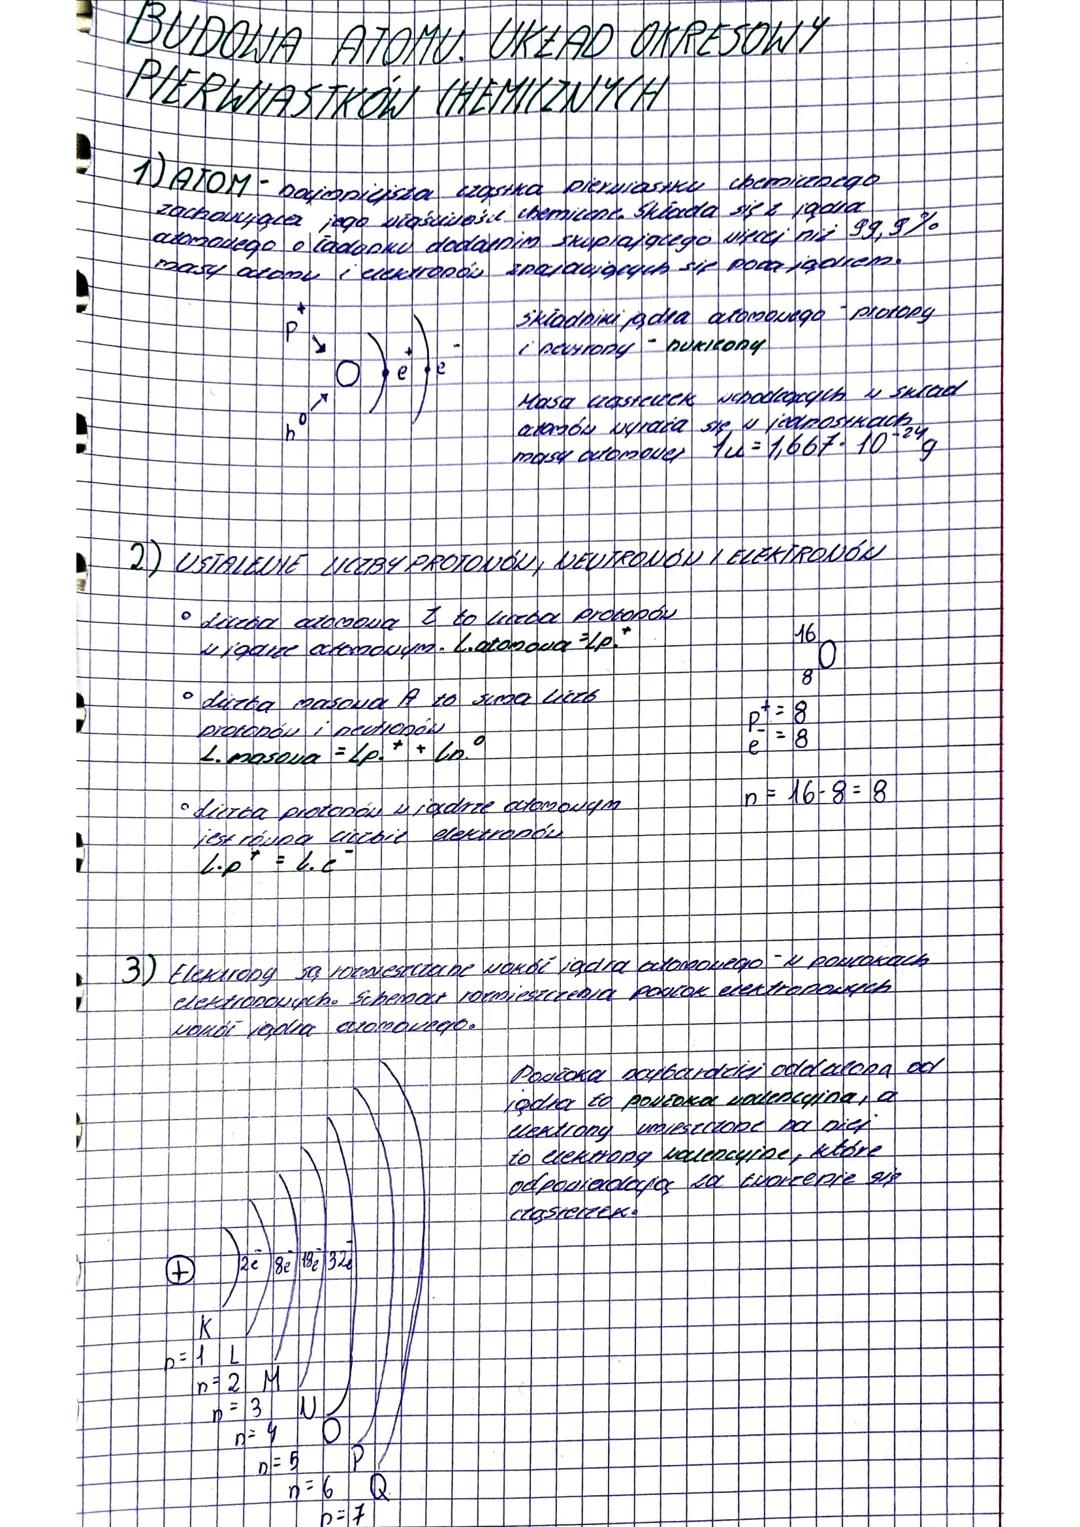 BUDOWA ATOMU. UKŁAD OKRESOWY
PIERWIASTKÓW CHEMICZNYCH
1) ATOM - najmniejsza cząstka pierwiastka chemicznego
zachowująca jego właściwości chemiczne. Składa się z jądra
atomowego o ładunku dodatnim skupiającego więcej niż 99,9%
masy atomu i elektronów znajdujących się poza jądrem.
p+
n0
e+
e-
Składniki jądra atomowego - protony
i neutrony - nukleony
Masa cząsteczek wchodzących w skład
atomów wyraża się w jednostkach
masy atomowej 1u = 1,667 · 10⁻²⁴g
2) USTALENIE LICZBY PROTONÓW, NEUTRONÓW I ELEKTRONÓW
° Liczba atomowa Z to liczba protonów
w jądrze atomowym. L.atomowa = Lp.+
° Liczba masowa A to suma liczb
protonów i neutronów
L. masowa = Lp.+ + Ln.0
° Liczba protonów w jądrze atomowym
jest równa liczbie elektronów
L.p+ = L.e-
16
O
8
p+ = 8
e- = 8
n = 16-8 = 8
3) Elektrony są rozmieszczane wokół jądra atomowego - w powłokach
elektronowych. Schemat rozmieszczenia powłok elektronowych
wokół jądra atomowego.
Powłoka najbardziej oddalona od
jądra to powłoka walencyjna, a
elektrony umieszczone na niej
to elektrony walencyjne, które
odpowiadają za tworzenie się
cząsteczek.
+ 2e- 8e- 18e- 32e-
K
n=1 L
n=2 M
n=3 N
n=4 O
n=5 P
n=6 Q
n=7